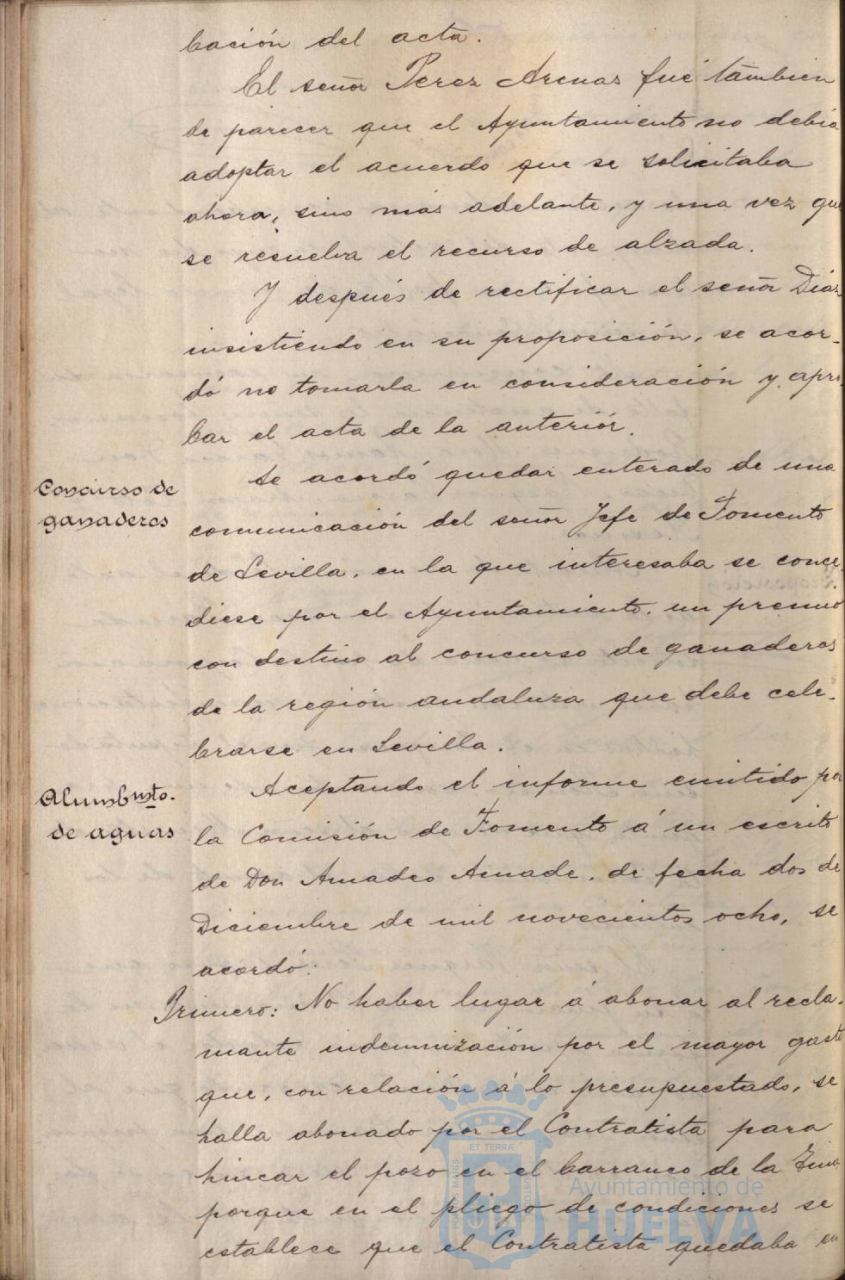 bación del acta.
El señor Perez Arenas fué tambien
de parecer que el Ayuntamiento no debia
adoptar el acuerdo que se solicitaba
ahora, sino más adelante, y una vez que
se resuelva el recurso de alzada.
Y después de rectificar el señor Díaz
insistiendo en su proposición, se acor-
dó no tomarla en consideración y apro-
bar el acta de la anteriór.
Concurso de
ganaderos
Se acordó quedar enterado de una
comunicación del señor Jefe de Fomento
de Sevilla, en la que interesaba se conce-
diese por el Ayuntamiento, un premio
con destino al concurso de ganaderos
de la región andaluza que debe cele-
brarse en Sevilla.
Alumbmto.
de aguas
Aceptando el informe emitido por
la Comisión de Fomento á un escrito
de Don Amadeo Amade, de fecha dos de
Diciembre de mil novecientos ocho, se
acordó:
Primero: No haber lugar á abonar al recla-
mante indemnización por el mayor gasto
que, con relación á lo presupuestado, se
halla abonado por el Contratista para
hincar el pozo en el barranco de la
porque en el pliego de condiciones se
establece que el Contratista quedaba en
ET TERRA
Ayuntamiento de
HUELVA